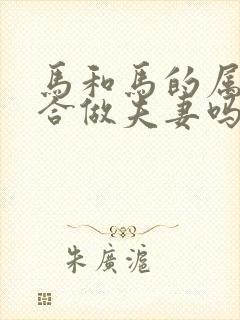 馬和馬的属
合做夫妻吗
朱廣滬